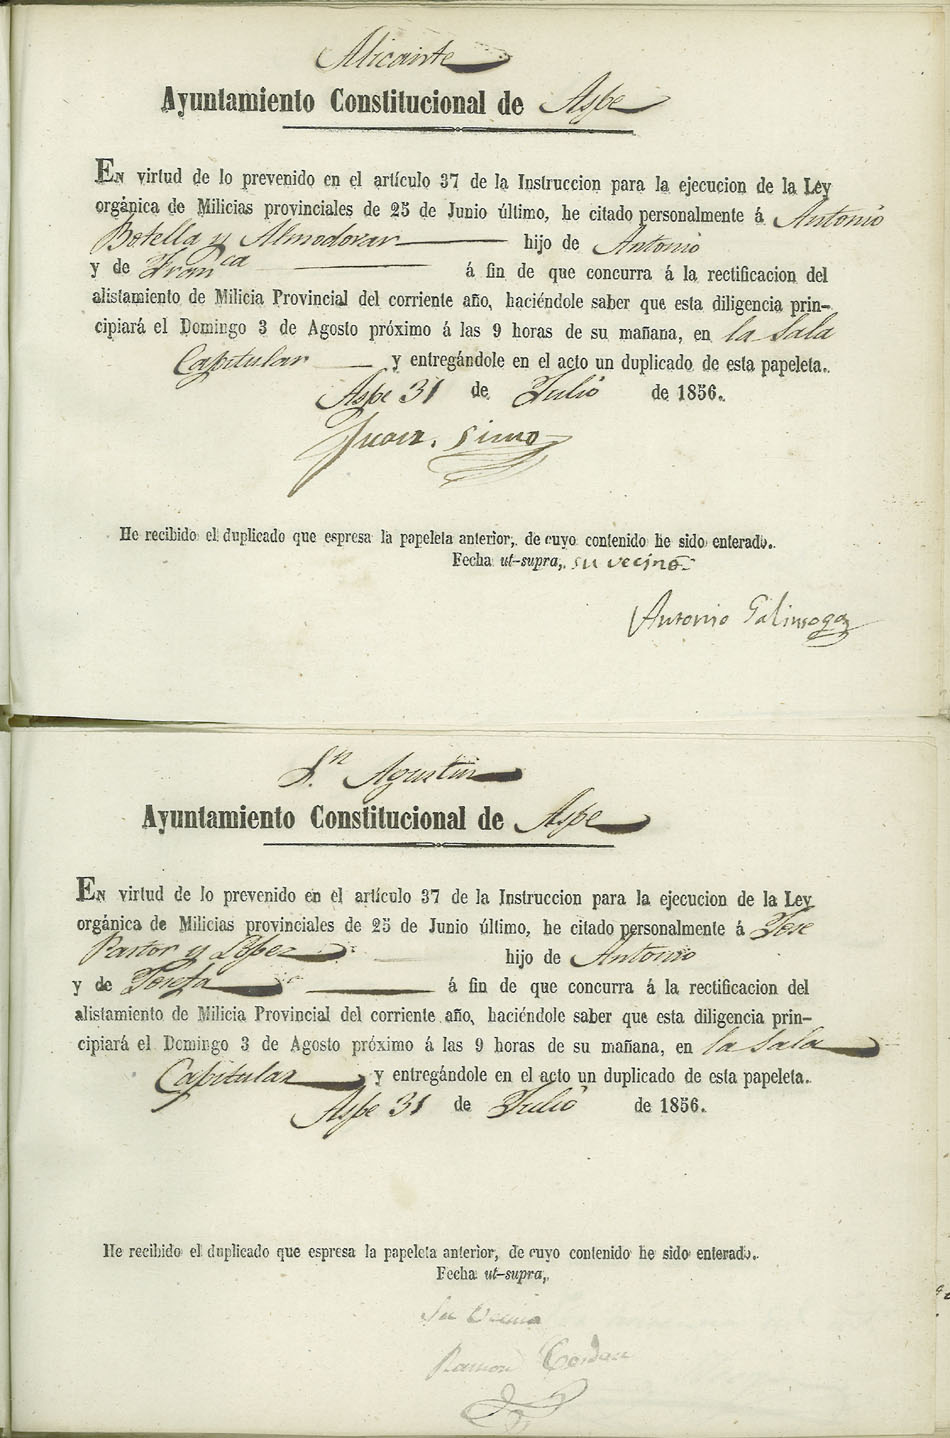 Alicante
Ayuntamiento Constitucional de Aspe
En virtud de lo prevenido en el artículo 37 de la Instruccion para la ejecucion de la Ley
orgánica de Milicias provinciales de 25 de Junio último, he citado personalmente á Antonio
Botella y Almodovar hijo de Antonio
y de Franca á fin de que concurra á la rectificacion del
alistamiento de Milicia Provincial del corriente año, haciéndole saber que esta diligencia prin-
cipiará el Domingo 3 de Agosto próximo á las 9 horas de su mañana, en la Sala
Capitular y entregándole en el acto un duplicado de esta papeleta.
Aspe 31 de Julio de 1856.
Juan Simo
He recibido el duplicado que espresa la papeleta anterior, de cuyo contenido he sido enterado.
Fecha ut-supra, su vecino
Antonio Galinsoga
Sn. Agustin
Ayuntamiento Constitucional de Aspe
En virtud de lo prevenido en el artículo 37 de la Instruccion para la ejecucion de la Ley
orgánica de Milicias provinciales de 25 de Junio último, he citado personalmente á Jose
Pastor y Lopez hijo de Antonio
y de Josefa á fin de que concurra á la rectificacion del
alistamiento de Milicia Provincial del corriente año, haciéndole saber que esta diligencia prin-
cipiará el Domingo 3 de Agosto próximo á las 9 horas de su mañana, en la Sala
Capitular y entregándole en el acto un duplicado de esta papeleta.
Aspe 31 de Julio de 1856.
He recibido el duplicado que espresa la papeleta anterior, de cuyo contenido he sido enterado.
Fecha ut-supra,
Su Vecino
Ramon Cerdan